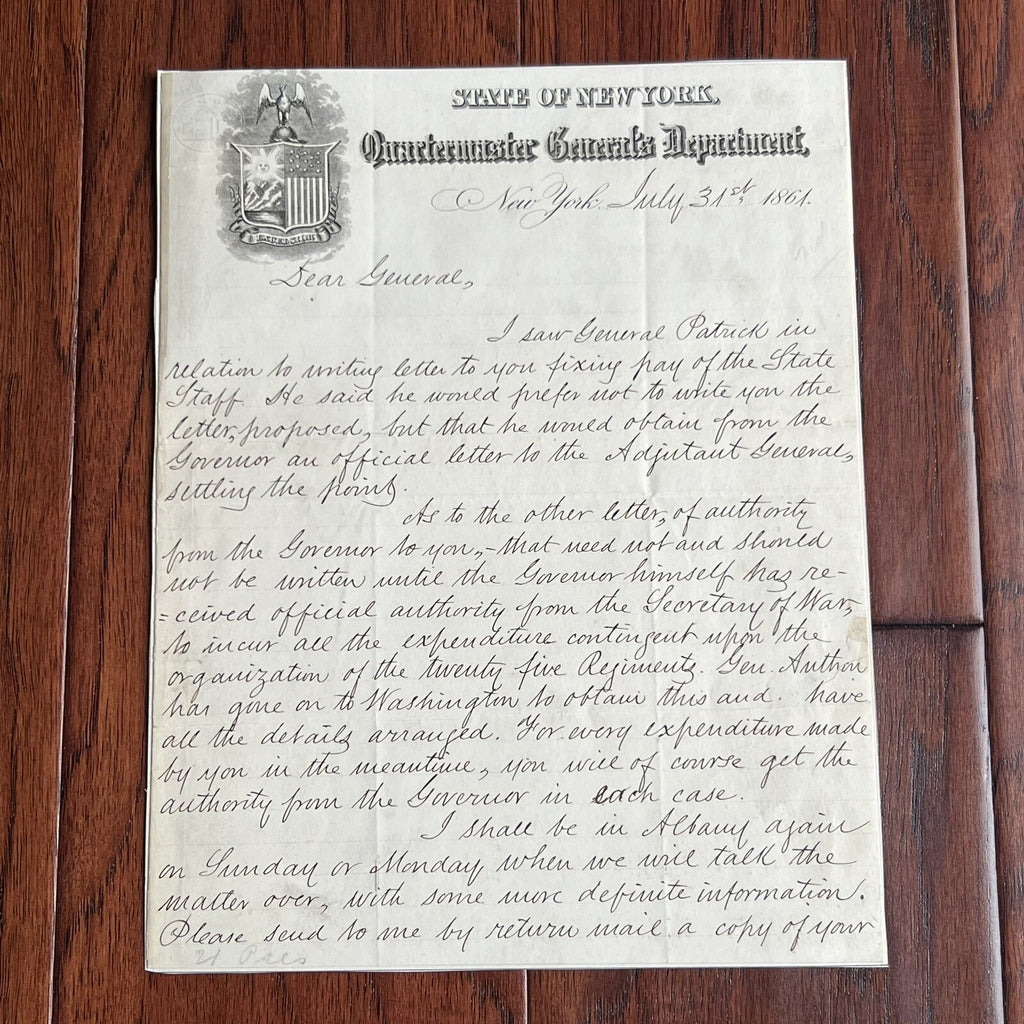 STATE OF NEW YORK,
Quartermaster General's Department,
New York. July 31st, 1861.
Dear General,
I saw General Patrick in
relation to writing letter to you fixing pay of the State
Staff. He said he would prefer not to write you the
letter, proposed, but that he would obtain from the
Governor an official letter to the Adjutant General,
settling the point.
As to the other letter, of authority
from the Governor to you,-that need not and should
not be written until the Governor himself has re-
=ceived official authority from the Secretary of War,
to incur all the expenditure contingent upon the
organization of the twenty five Regiments. Gen. Anthon
has gone on to Washington to obtain this and. have
all the details arranged. For every expenditure made
by you in the meantime, you will of course get the
authority from the Governor in each case.
I shall be in Albany again
on Sunday or Monday, when we will talk the
matter over, with some more definite information.
Please send to me by return mail a copy of your